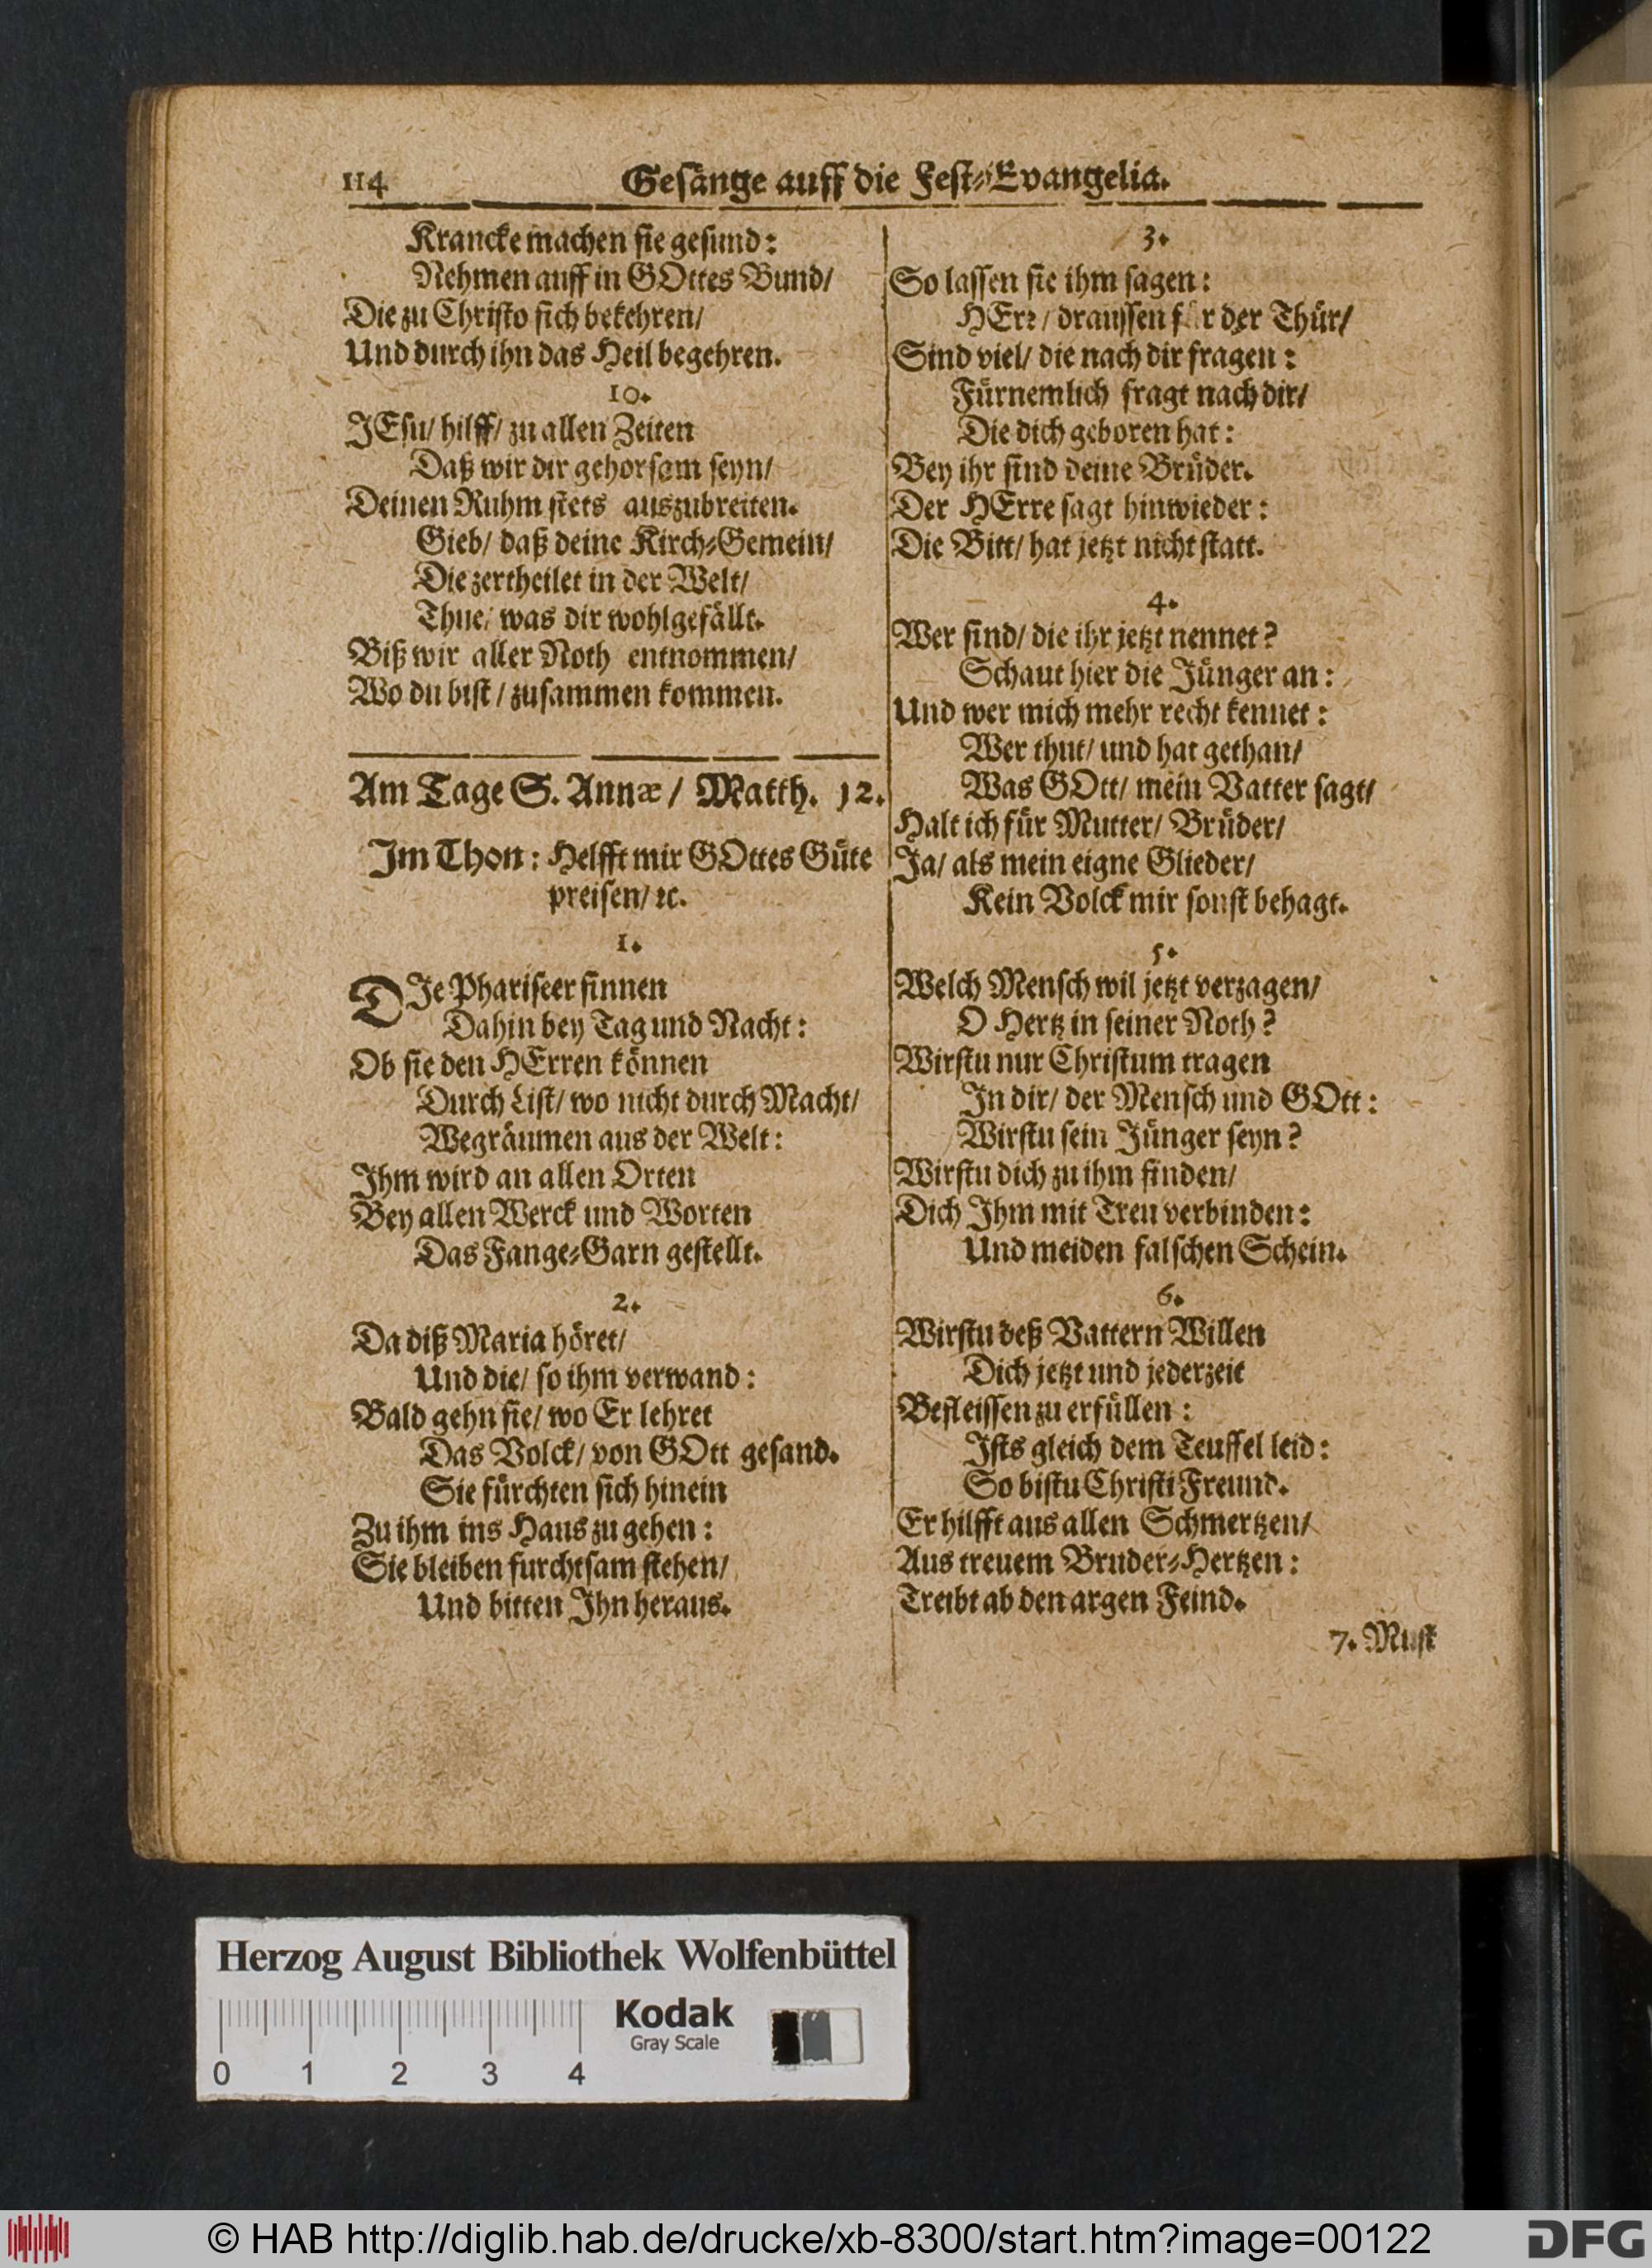 114
Gesänge auff die Fest-Evangelia.
Krancke machen sie gesund:
Nehmen auff in GOttes Bund/
Die zu Christo sich bekehren/
Und durch ihn das Heil begehren.
10.
JEsu/ hilff/ zu allen Zeiten
Daß wir dir gehorsam seyn/
Deinen Ruhm stets auszubreiten.
Gieb/ daß deine Kirch-Gemein/
Die zertheilet in der Welt/
Thue/ was dir wohlgefällt.
Biß wir aller Noth entnommen/
Wo du bist/ zusammen kommen.
Am Tage S. Annæ/ Matth. 12.
Im Thon: Helfft mir GOttes Güte
preisen/ ꝛc.
1.
DIe Phariseer sinnen
Dahin bey Tag und Nacht:
Ob sie den HErren können
Durch List/ wo nicht durch Macht/
Wegräumen aus der Welt:
Ihm wird an allen Orten
Bey allen Werck und Worten
Das Fange-Garn gestellt.
2.
Da diß Maria höret/
Und die/ so ihm verwand:
Bald gehn sie/ wo Er lehret
Das Volck/ von GOtt gesand.
Sie fürchten sich hinein
Zu ihm ins Haus zu gehen:
Sie bleiben furchtsam stehen/
Und bitten Ihn heraus.
3.
So lassen sie ihm sagen:
HErꝛ/ draussen für der Thür/
Sind viel/ die nach dir fragen:
Fürnemlich fragt nach dir/
Die dich geboren hat:
Bey ihr sind deine Brüder.
Der HErre sagt hinwieder:
Die Bitt/ hat jetzt nicht statt.
4.
Wer sind/ die ihr jetzt nennet?
Schaut hier die Jünger an:
Und wer mich mehr recht kennet:
Wer thut/ und hat gethan/
Was GOtt/ mein Vatter sagt/
Halt ich für Mutter/ Brüder/
Ja/ als mein eigne Glieder/
Kein Volck mir sonst behagt.
5.
Welch Mensch wil jetzt verzagen/
O Hertz in seiner Noth?
Wirstu nur Christum tragen
In dir/ der Mensch und GOtt:
Wirstu sein Jünger seyn?
Wirstu dich zu ihm finden/
Dich Ihm mit Treu verbinden:
Und meiden falschen Schein.
6.
Wirstu deß Vattern Willen
Dich jetzt und jederzeit
Befleissen zu erfüllen:
Ists gleich dem Teuffel leid:
So bistu Christi Freund.
Er hilfft aus allen Schmertzen/
Aus treuem Bruder-Hertzen:
Treibt ab den argen Feind.
7. Must
Herzog August Bibliothek Wolfenbüttel
Kodak
Gray Scale
0 1 2 3 4
© HAB http://diglib.hab.de/drucke/xb-8300/start.htm?image=00122
DFG